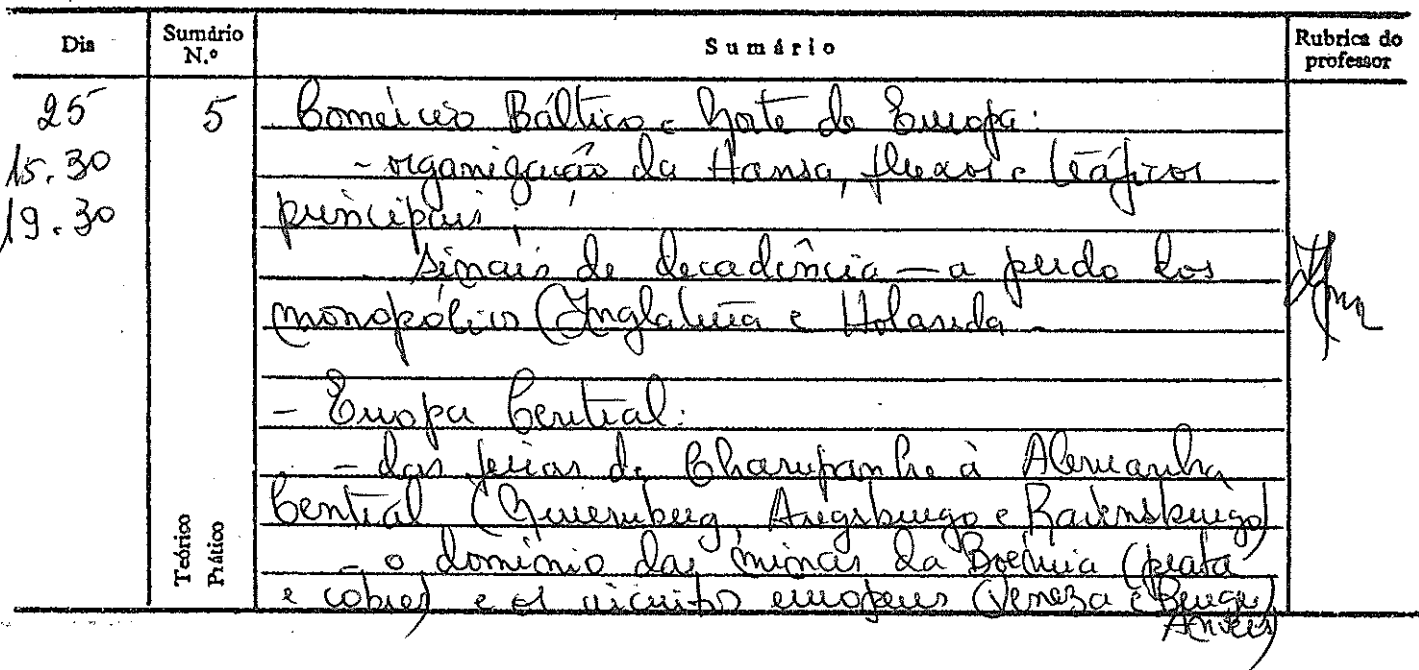 Dia Sumário N.º Sumário Rubrica do professor
25 5 Comércio Báltico e Norte da Europa:
15.30 - organização da Hansa, fluxos e tráficos
19.30 principais;
- sinais de decadência — a perda dos
monopólios (Inglaterra e Holanda -
- Europa Central:
- das feiras de Champanhe à Alemanha
Central (Nuremberg, Augsburgo e Ravensburgo)
- o domínio das minas da Boémia (prata
e cobre) e os circuitos europeus (Veneza e Bruges,
Anvers)
Teórico
Prático